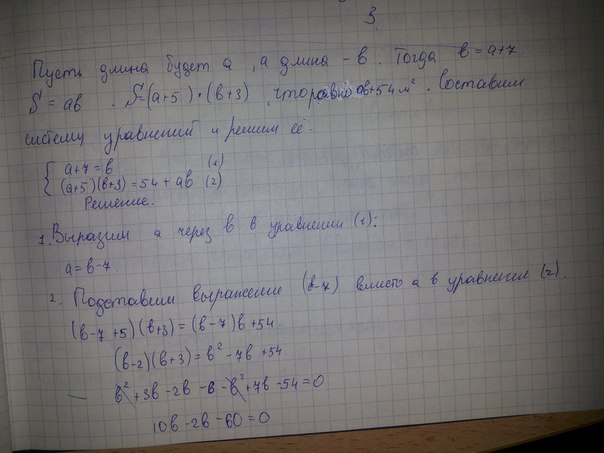 3
Пусть длина будет а, а длина - в. Тогда в = а+7.
S = ав. S=(а+5)·(в+3), что равно ав+54 м². Составим
систему уравнений и решим её:
{ а+7=в (1)
(а+5)(в+3)=54+ав (2)
Решение.
1. Выразим а через в в уравнении (1):
а=в-7.
2. Подставим выражение (в-7) вместо а в уравнения (2).
(в-7+5)(в+3)=(в-7)в+54
(в-2)(в+3)=в²-7в+54.
в²+3в-2в-6-в²+7в-54=0
10в-2в-60=0